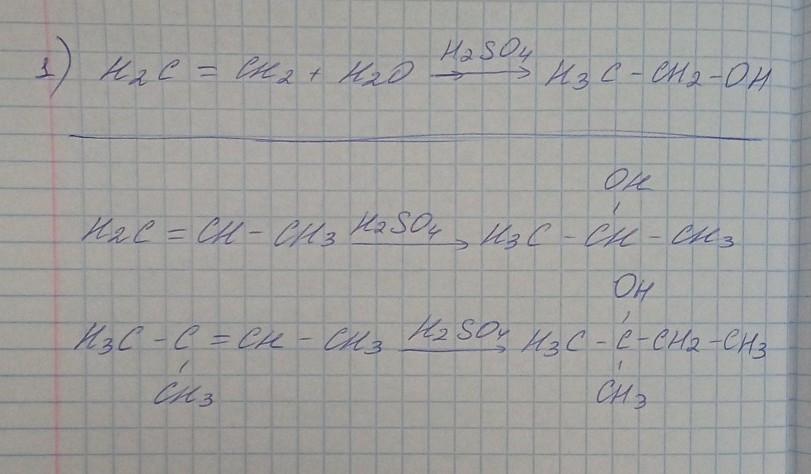 1) H2C = CH2 + H2O H2SO4 → H3C - CH2 - OH
OH
H2C = CH - CH3 H2SO4 → H3C - CH - CH3
OH
H3C - C = CH - CH3 H2SO4 → H3C - C - CH2 - CH3
CH3 CH3